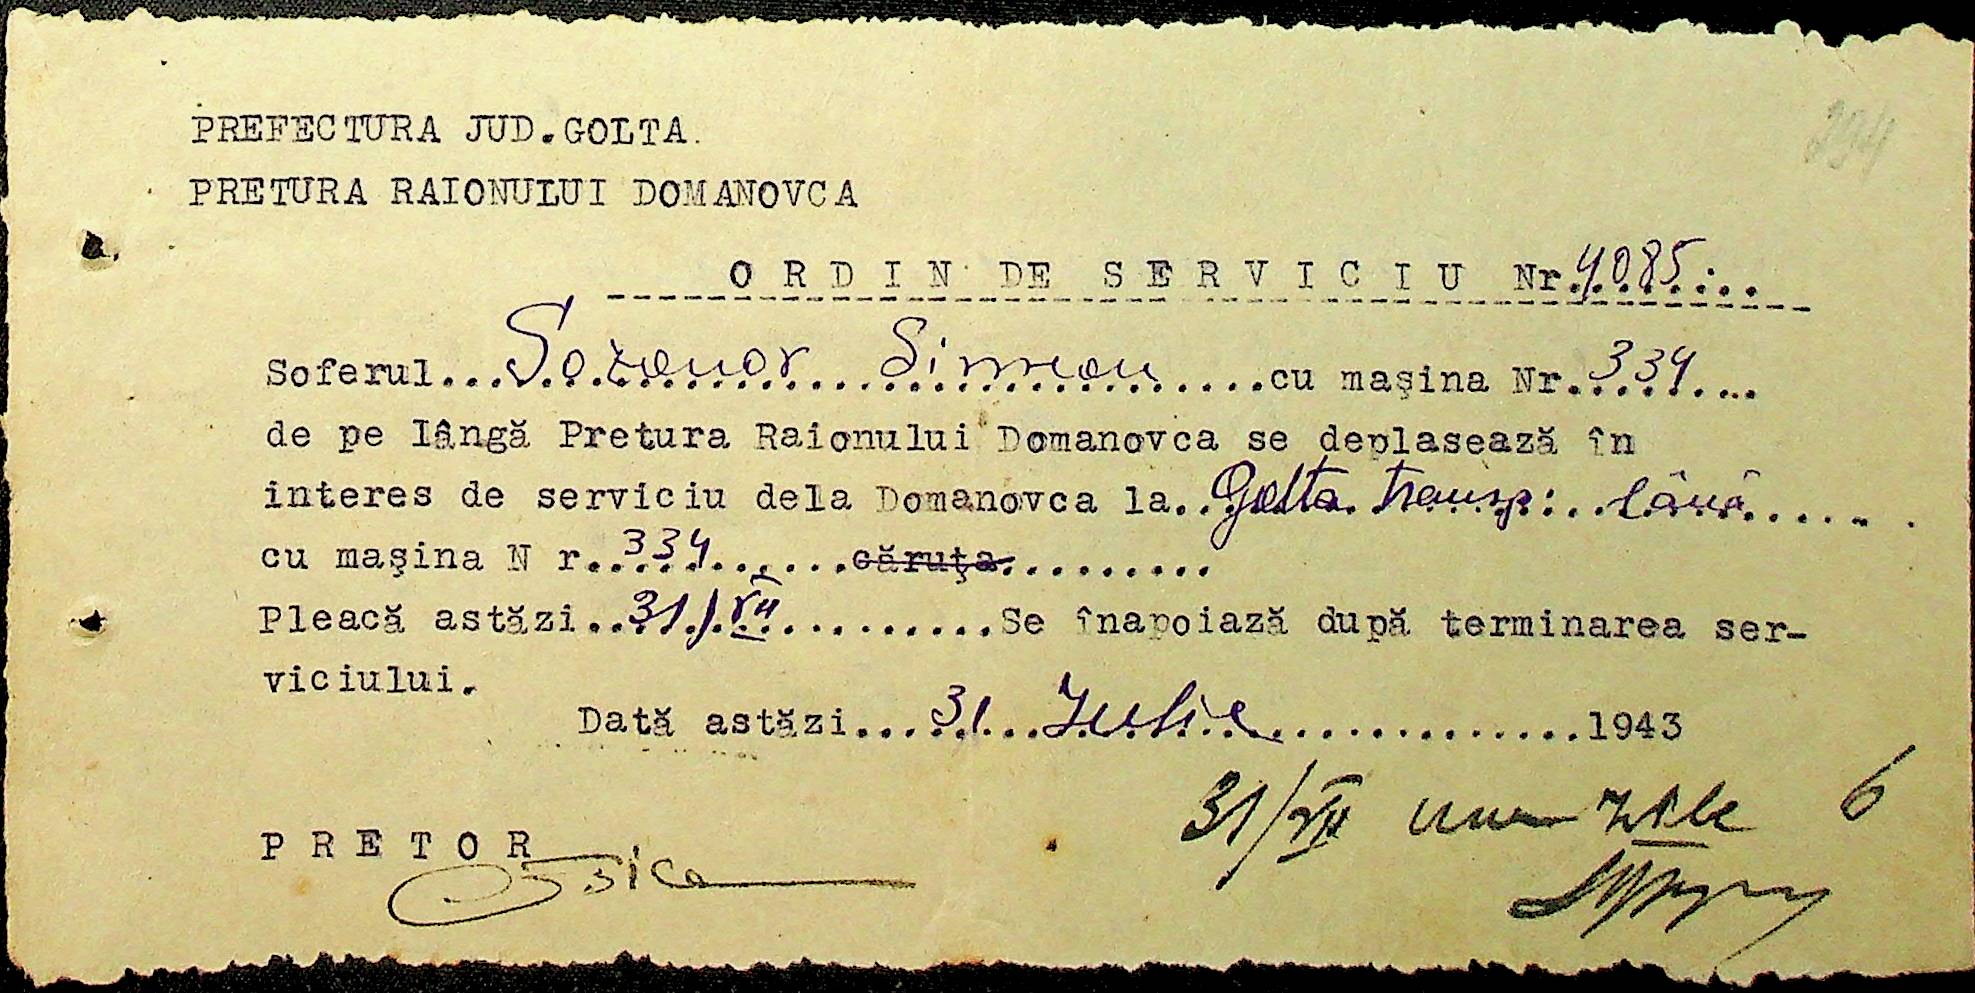 294
PREFECTURA JUD.GOLTA.
PRETURA RAIONULUI DOMANOVCA
ORDIN DE SERVICIU Nr. 4085...
Soferul... Sozonov Simion ...cu mașina Nr. 334...
de pe lângă Pretura Raionului Domanovca se deplasează în
interes de serviciu dela Domanovca la.. Golta transp: lână.....
cu mașina N r. 334 ......căruța.........
Pleacă astăzi.. 31/VII ..........Se înapoiază după terminarea ser-
viciului.
Dată astăzi... 31 Iulie ...............1943
31/VII 6
PRETOR